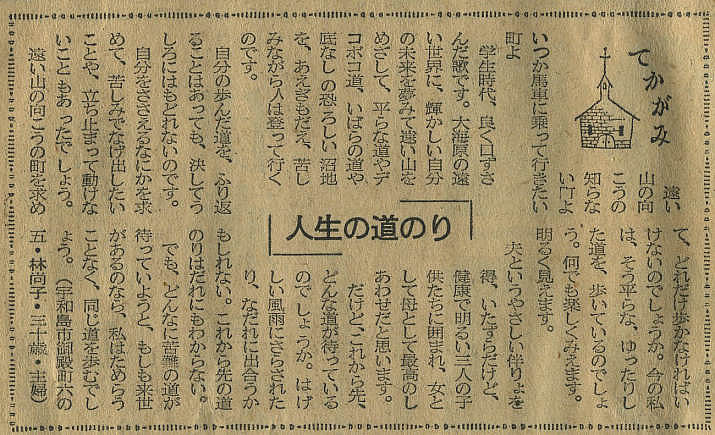 てかがみ
人生の道のり
遠い
山の向
こうの
知らな
い町よ
いつか馬車に乗って行きたい
町よ
学生時代、良く口ずさ
んだ歌です。大海原の遠
い世界に、輝かしい自分
の未来を夢みて遠い山を
めざして、平らな道やデ
コボコ道、いばらの道や
底なしの恐ろしい沼地
を、あえぎもだえ、苦し
みながら人は登って行く
のです。
自分の歩んだ道を、ふり返
ることはあっても、決してう
しろにはもどれないのです。
自分をささえるなにかを求
めて、苦しみでなげ出したい
ことや、立ち止まって動けな
いこともあったでしょう。
遠い山の向こうの町を求め
て、どれだけ歩かなければい
けないのでしょうか。今の私
は、そう平らな、ゆったりし
た道を、歩いているのでしょ
う。何でも楽しくみえます。
明るく見えます。
夫というやさしい伴りょを
得、いたずらだけど、
健康で明るい三人の子
供たちに囲まれ、女と
して母として最高のし
あわせだと思います。
だけど、これから先、
どんな道が待っている
のでしょうか。はげ
しい風雨にさらされた
り、なだれに出合うか
もしれない。これから先の道
のりはだれにもわからない。
でも、どんなに苦難の道が
待っていようと、もしも来世
があるのなら、私はためらう
ことなく、同じ道を歩むでし
ょう。（宇和島市御殿町六の
五・林尚子・三十歳・主婦）